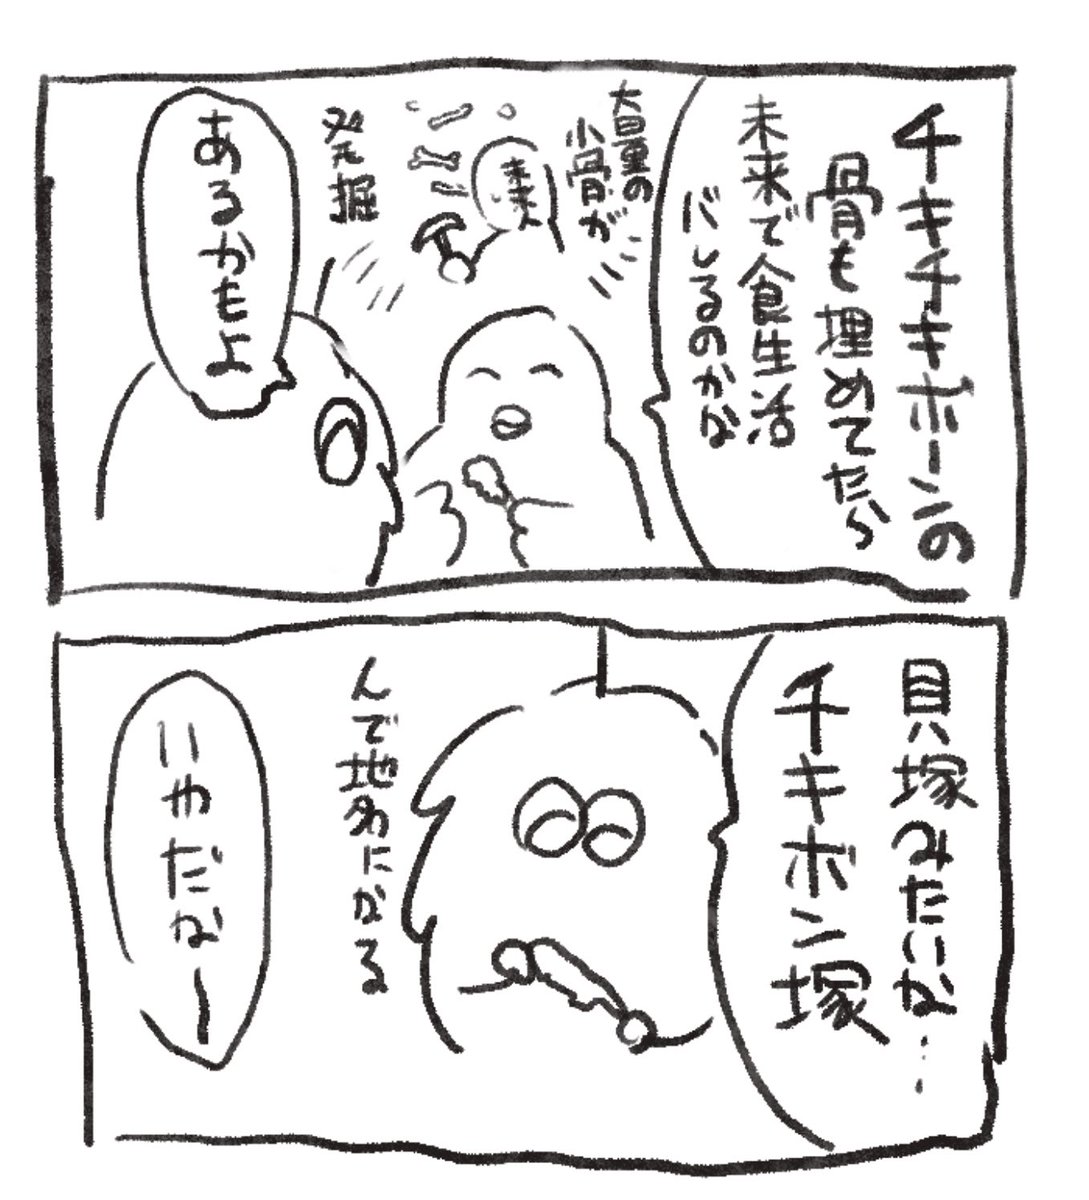 チキチキボーンの
骨も埋めてたら
未来で食生活
バレるのかな
大量の
小骨が
未来人
発掘
あるかもよ
貝塚みたいな…
チキボン塚
んで地名になる
いやだな〜